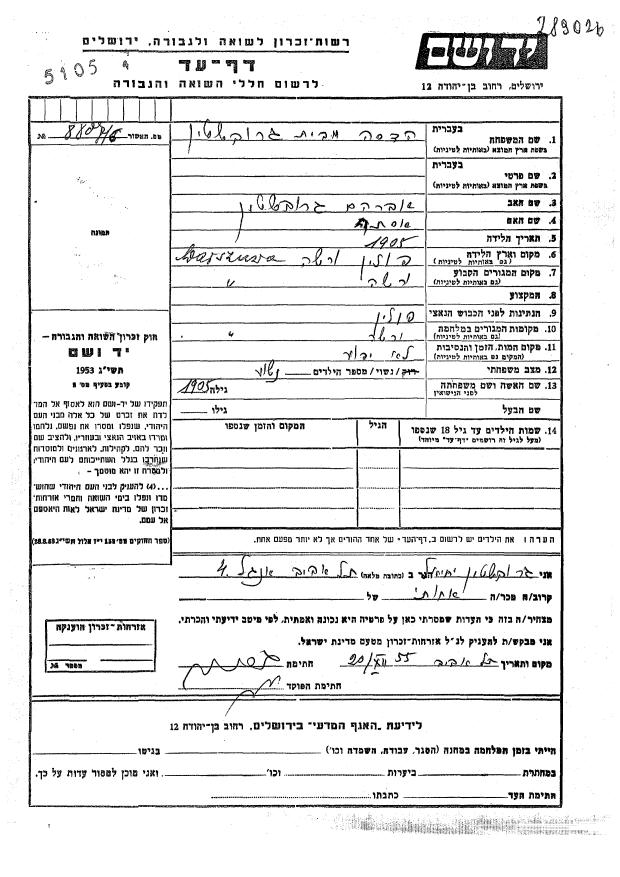 289026
רשות־זכרון לשואה ולגבורה, ירושלים
יד ושם
5905 9
דף־עד
לרשום חללי השואה והגבורה
ירושלים, רחוב בן־יהודה 12
מס. תאשור
№
תמונה
1. שם המשפחה בעברית
בשפת ארץ המוצא (באותיות לטיניות)
הדסה מבית גרובשטיין
2. שם פרטי בעברית
בשפת ארץ המוצא (באותיות לטיניות)
3. שם האב אברהם גרובשטיין
4. שם האם אסתר
5. תאריך הלידה 1905
6. מקום וארץ הלידה
(גם באותיות לטיניות)
פולין ורשה Warszawa
7. מקום המגורים הקבוע
(גם באותיות לטיניות)
ורשה "
8. המקצוע
9. הנתינות לפני הכבוש הנאצי פולין
10. מקומות המגורים במלחמה
(גם באותיות לטיניות)
ורשה "
11. מקום המות, הזמן והנסיבות
(המקום גם באותיות לטיניות)
לא ידוע
12. מצב משפחתי רוק/נשוי/מספר הילדים נשוי
13. שם האשה ושם משפחתה
לפני הנישואין
גילה 1905
שם הבעל גילו
14. שמות הילדים עד גיל 18 שנספו
(מעל לגיל זה רושמים "דף־עד" מיוחד)
הגיל
המקום והזמן שנספו
חוק זכרון השואה והגבורה –
יד ושם
תשי"ג 1953
קובע בסעיף מס' 2
תפקידו של יד־ושם הוא לאסוף אל המו־
לדת את זכרם של כל אלה מבני העם
היהודי, שנפלו ומסרו את נפשם, נלחמו
ומרדו באויב הנאצי ובעוזריו, ולהציב שם
וזכר להם, לקהילות, לארגונים ולמוסדות
שנחרבו בגלל השתייכותם לעם היהודי,
ולמטרה זו יהא מוסמך –
...(4) להעניק לבני העם היהודי שהוש־
מדו ונפלו בימי השואה והמרי אזרחות־
זכרון של מדינת ישראל לאות היאספם
אל עמם.
הערה: את הילדים יש לרשום ב,,דף־העד" של אחד ההורים אך לא יותר מפעם אחת.
אני גרובשטיין יחיאל הגר ב (כתובת מלאה) תל אביב אנגל 4
קרוב/ה מכר/ה אחותי של
מצהיר/ה בזה כי העדות שמסרתי כאן על פרטיה היא נכונה ואמתית, לפי מיטב ידיעתי והכרתי.
אני מבקש/ת להעניק לנ"ל אזרחות־זכרון מטעם מדינת ישראל.
מקום ותאריך תל אביב 20/XII 55 חתימה
חתימת הפוקד
אזרחות־זכרון הוענקה
מספר №
לידיעת האגף המדעי בירושלים, רחוב בן־יהודה 12
הייתי בזמן המלחמה במחנה (הסגר, עבודה, השמדה וכו') בגיטו
במחתרת ביערות וכו' ואני מוכן למסור עדות על כך.
חתימת העד כתבתו